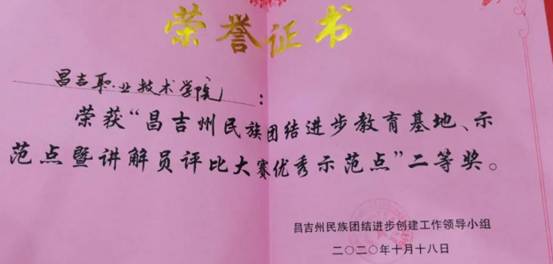 荣誉证书
昌吉职业技术学院：
荣获“昌吉州民族团结进步教育基地、示
范点暨讲解员评比大赛优秀示范点”二等奖。
昌吉州民族团结进步创建工作领导小组
二〇二〇年十月十八日